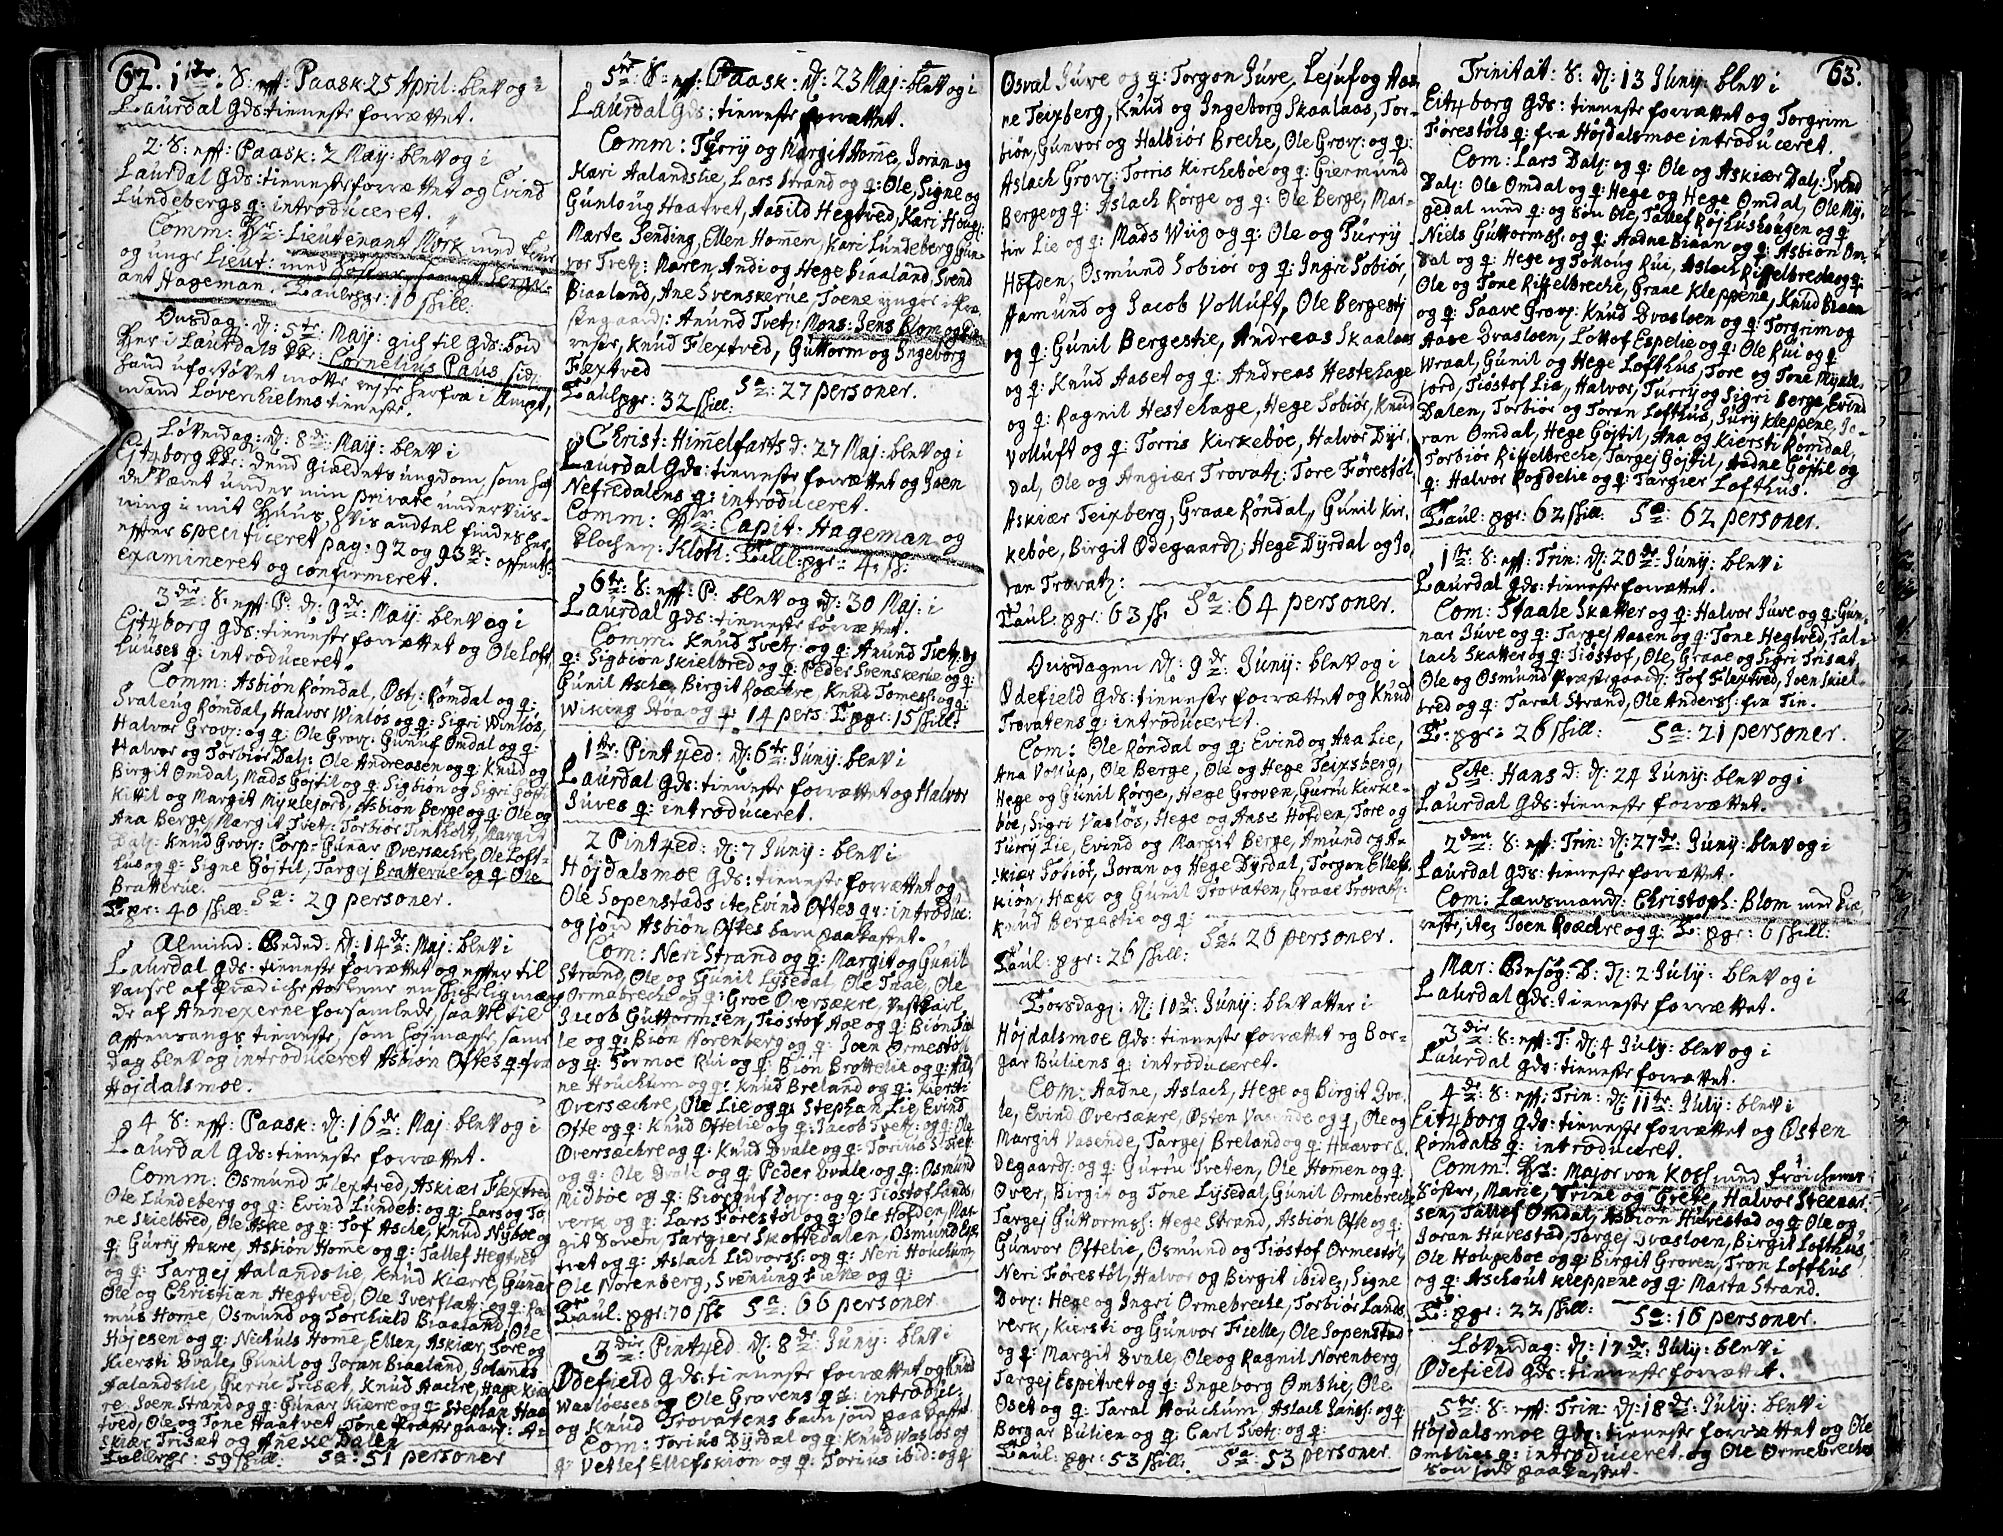 62. 1ste S: eff: Paask: 25 April: blev og i
Laurdal Gds: tienneste forrættet.
2. S: eff: Paask: 2 Maij: blev og i
Laurdal Gds: tienneste forrættet og Evind
Lundebergs q: introduceret.
Comm: Hr: Lieutenant Mørk med
og unge Lieut: med
ant Hageman. Taul: pgr: 10 skill:
Onsdag: d: 5te Maij: gich til Gds: bord
her i Laurdals Cornelius Paus,
hand ufortøvet motte reyse herfra i Ampt,
mand Løvenhielms tieneste.
Løverdag: d: 8de Maij: blev i
Eitzborg dend Giældets ungdom, som haf
de været under min private underviis-
ning i mit Huus, hvis andtel findes her
effter specificeret pag: 92 og 93 offentl:
examineret og confirmeret.
3die S: eff: P: d: 9de Maij: blev og i
Eitzborg Gds: tienneste forrættet og Ole Loft
huuses q: introduceret.
Comm: Asbiøn Rømdal, Øst: Rømdal og q:
Svaleug Rømdal, Halvor Winløs og q: Sigri Winløs,
Halvor Grov: og q: Ole Grov: Gunuf Omdal og q:
Halvor og Torbiør Dal: Ole Andreasen og q: Knud og
Birgit Omdal, Mads Gøjtil og q: Sigbiøn og Sigri
Kittil og Margit Myklejord, Asbiøn Berge og q: Ole og
Ana Berge, Margit Tvet: Torbiør
Dal: Knud Grov: Corp: Gunar Oversæchre, Ole Loft-
hus og q: Signe Gøjtil, Targej Bratterue og q: Ole
Bratterue.
T: pgr: 40 skill: Sa: 29 personer.
Almind: Beded: d: 14de Maj: blev i
Laurdal Gds: tienneste forrættet og effter til
varsel af prædichestoelene en skichelig mæng
de af Annexerne forsamlede, saa vel til
afftensangs tienneste, som højmæsse, samme
dag blev og introduceret Asbiøn Oftes q: fra
Højdalsmoe.
4 S: eff: Paask: d: 16de Maj: blev og i
Laurdal Gds: tienneste forrættet.
Comm: Osmund Flextved, Askiær Flextved
Ole Lundeberg og q: Evind Lundeb: og q: Lars og To-
ne Skielbred, Ole Aske og q: Tof Asche, Knud Nÿboe og
q: Gurrÿ Aakre, Asbiøn Home og q: Tallef Hegtved
og q: Targej Aalandslie, Knud Kiærre, Gunar
Ole og Christian Hegtved, Ole Iverflat: og q: Ra
mus Home, Osmund og Torchield Biaaland, Ole
Højesen og q: Nichuls Home, Ellen, Askiær, Tore og
Kiersti Dvale, Gunil og Joran Biaaland, Johanes
Aalandslie, Gurrue Trisæt, Knud Aachre, Hage Kiær
re, Joen Strand og q: Gunar Kiærre og q: Stephan Haa
tved, Ole og Tone Haatvet, Tone Præstegaard: As
kiær Trisæt og Aneke Dalen
Taul: pgr: 59 skill: Sa: 51 personer
5te S: eff: Paask: d: 23 Maj: blev og i
Laurdal Gds: tienneste forrættet.
Comm: Turrÿ og Margit Home, Joran og
Kari Aalandslie, Lars Strand og q: Ole, Signe og
Gunloug Haatvet, Aasild Hegtved, Kari Houg:
Marte Sending, Ellen Homen, Kari Lundeberg, Gun-
vor Tvet: Maren, Andi og Hege Biaaland, Svend
Biaaland, Ane Svenskerue, Toene ÿngre Præ-
stegaard: Anund Tvet: Mons: Jens Blom og Kiæ
reste, Knud Flextved, Guttorm og Ingeborg
Flextved
Taul: pgr: 32 skill: Sa: 27 personer.
Christ: Himmelfarts d: 27 Maj: blev og i
Laurdal Gds: tienneste forrættet og Joen
Nefredalens q: introduceret.
Comm: Hr: Capit: Hageman og
Klocher: Klot: Taul: pgr: 4 sk:
6te S: eff: P: blev og d: 30 Maj: i
Laurdal Gds: tienneste forrættet.
Comm: Knud Tvet: og q: Anund Tvet: og
q: Sigbiøn Skielbred og q: Peder Svenskerue og q:
Gunil Asche, Birgit Roachre, Knud Tomes: og q:
Wiking Høa og q: 14 pers: T: pgr: 15 skill:
1ste Pintzed: d: 6te Junÿ: blev i
Laurdal Gds: tienneste forrættet og Halvor
Juves q: introduceret.
2 Pintzed: d: 7 Junÿ: blev i
Højdalsmoe Gds: tienneste forrættet og
Ole Sopenstads ite, Evind Oftes qr: introduc:
og jord Asbiøn Oftes barn paakastet.
Com: Neri Strand og q: Margit og Gunil
Strand, Ole og Gunil Lÿsedal, Ole Ole
Ormebreche og q: Groe Oversækre, Vestkarl
Jacob Guttormsen, Tiøstof Aoe og q: Biøn Fiel
le og q: Biøn Norenberg og q: Joen Ormestøl
og q: Tormoe Rui og q: Biøn Brottelie og q: Aad
ne Houchum og q: Knud Breland og q: Kiersti
Oversæchre, Ole Lie og q: Stephan Lie, Evind
Ofte og q: Knud Oftelie og q: Jacob Tvet: og q: Ole
Oversæchre og q: Knud Dvale og q: Torius
og q: Ole Dvale og q: Peder Dvale og q: Osmund
Midbøe og q: Biørguf Dov: og q: Tiøstof Lands
verk og q: Lars Førestøl og q: Ole Hofden, Mar
git Doven, Targier Skottedalen, Osmund Esp
tvet og q: Aslach Lidvors: og q: Neri Houchum,
Ole Norenberg, Svenung Fielle og q:
Taul: pgr: 70 sk: Sa: 66 personer.
3die Pintzed: d: 8de Junÿ: blev i
Ødefield Gds: tienneste forrættet og Knud
Wasløeses og Ole Grovens qr: introduc:
og Knud Trovatens barn jord paakastet.
Com: Torius Dÿrdal og q: Knud Wasløs og
q: Vetlef Ellefskion og q: Torius ibid: og q
Osval Juve og q: Torgon Juve, Lejuf og Aas
ne Teixberg, Knud og Ingeborg Skaalaas, Tor-
biøn, Gunvor og Halbiør Breche, Ole Grov: og q:
Aslach Grov: Torris Kirchebøe og q: Giermund
Berge og q: Aslach Rørge og q: Ole Berge, Mar-
tin Lie og q: Mads Wiig og q: Ole og Purrÿ
Hofden, Osmund Sobiør og q: Ingri Sobiør,
Aamund og Jacob Volluft, Ole Bergesti
og q: Gunil Bergestie, Andreas Skaalaas
og q: Knud Aaset og q: Andreas Hestehage
og q: Ragnil Hestehage, Hege Sobiør, Knud
Volluft og q: Torris Kirkebøe, Halvor Dÿr,
Dal, Ole og Angiær Trovat: Tore Førestøl
Askiær Teixberg, Graae Røndal, Gunil Kir,
kebøe, Birgit Ødegaard: Hege Dÿrdal og Jo,
ran Trovat:
Taul: pgr: 63 sk Sa: 64 personer.
Onsdagen d: 9de Junÿ: blev og i
Ødefield Gds: tienneste forrættet og Knud
Trovatens q: introduceret.
Com: Ole Røndal og q: Evind og Ana Lie,
Ana Vollup, Ole Berge, Ole og Hege Teixsberg,
Hege og Gunil Rørge, Hege Groven, Gurru Kirke-
bøe, Sigri Vasløs, Hege og Aase Hofden, Tore og
Turrÿ Lie, Evind og Margit Berge, Amund og A-
skiær Sobiør, Joran og Hege Dÿrdal, Torgon Ellefs
kiøn, Hæge og Gunil Trovaten, Graae Trovat:
Knud Bergestie og q:
Taul: pgr: 26 skill: Sa: 26 personer.
Torsdag: d: 10de Junÿ: blev atter i
Højdalsmoe Gds: tienneste forrættet og Bor-
gar Buliens q: introduceret.
Com: Aadne, Aslach, Hege og Birgit Dva-
le, Evind Oversækre, Østen Vasende og q, Ole og
Margit Vasende, Targej Breland og q: Haavor Ø-
degaard: og q: Gurru Tveten, Ole Homen og q:
Over, Birgit og Tone Lÿsedal, Gunil Ormebreche
Targej Guttorms: Hege Strand, Asbiøn Ofte og q:
Gunvor Oftelie, Osmund og Tiøstof Ormestøl,
Neri Førestøl, Halvor og Birgit ibide, Signe
Dov: Hege og Ingri Ormebreche, Torbiør Lands
verk, Kiersti og Gunvor Fielle, Ole Sopenstad
og q: Margit Dvale, Ole og Ragnil Norenberg
Targej Espetvet og q: Ingeborg Omslie, Ole
Oset og q: Taral Houchum Aslach Jans: og q:
Borgar Bulien og q: Carl Tvet: og q:
Taul: pgr: 53 skill. Sa: 53 personer.
63.
Trinitat: S: d: 13 Junÿ: blev i
Eitzborg Gds: tienneste forrættet og Torgrim
Førestøls q: fra Højdalsmoe introduceret.
Com: Lars Dal: og q: Ole og Askiær Dal: Svend
Dal: Ole Omdal og q: Hege og Hege Omdal, Ole Mÿ,
gedal med q: og søn Ole, Tallef Røjlushougen og q:
Niels Guttorms: og q: Aadne Biaan og q: Asbiøn Om-
dal og q: Hege og Tolloug Rui, Aslach Riffelbreche og q:
Ole og Tone Riffelbreche, Graae Kleppene, Knud Biaan
og q: Saave Grov: Knud Dvasloen og q: Torgrim og
Aase Dvasloen, Lottof Espelie og q: Ole Rui og q:
Wraal, Gunil og Hege Lofthus, Tore og Tone Mÿkle,
jord, Tiøstof Lia, Halvor, Turrÿ og Sigri Berge, Evind
Dalen, Torbiør og Toran Lofthus, Jurÿ Kleppene, Jo-
ran Omdal, Hege Gøjtil, Ana og Kiersti Rømdal,
Torbiør Riffelbreche, Targej Gøjtil, Aadne Gøjtil og
q: Halvor Rogdelie og q: Targier Lofthus.
Taul: pgr: 62 skill: Sa: 62 personer.
1ste S: eff: Trin: d: 20de Junÿ: blev i
Laurdal Gds: tienneste forrættet.
Com: Staale Skatter og q: Halvor Juve og q: Gun-
nar Juve og q: Targej Aasen og q: Tone Hegtved, Tal-
lach Skatter og q: Tiøstof, Ole, Graae og Sigri Trisæt,
Ole og Osmund Præstgaard: Tof Flextved, Joen Skiel-
bred og q: Taral Strand, Ole Anders: fra Tin.
T: pgr: 26 skill: Sa: 21 personer.
Scte: Hans d: d: 24 Junÿ: blev og i
Laurdal Gds: tienneste forrættet.
2den S: eff: Trin: d: 27de Junÿ: blev og i
Laurdal Gds: tienneste forrættet.
Com: Lænsmand: Christoph: Blom med Kiæ
reste, ite, Joen Roachre og q: T: pgr: 6 skill:
Mar: Besøg: D: d: 2 Julÿ: blev og i
Laurdal Gds: tienneste forrættet.
3die S: eff: T: d: 4 Julÿ: blev og i
Laurdal Gds: tienneste forrættet.
4de S: eff: Trin: d: 11te Julÿ: blev i
Eitzborg Gds: tienneste forrættet og Østen
Rømdals q: introduceret.
Comm: Hr: Major von Koss med Frøichener
Søstre, Marie, Trine og Grete, Halvor Stenar
sen, Tallef Omdal, Asbiøn Huvestad og q: Ole og
Joran Huvestad, Targej Dvasloen, Birgit Lofthus,
Ole Hougeboe og q: Birgit Groven, Tron Lofthus
og q: Aschout Kleppene og q: Marta Strand.
T: pgr: 22 skill: Sa: 16 personer.
Løverdag: d: 17de Julÿ: blev i
Ødefield Gds: tienneste forrættet.
5te S: eff: Trin: d: 18de Julÿ: blev i
Højdalsmoe Gds: tienneste forrættet og Ole
Omslies q: introduceret og Ole Ormebreches
søn jord paakastet.